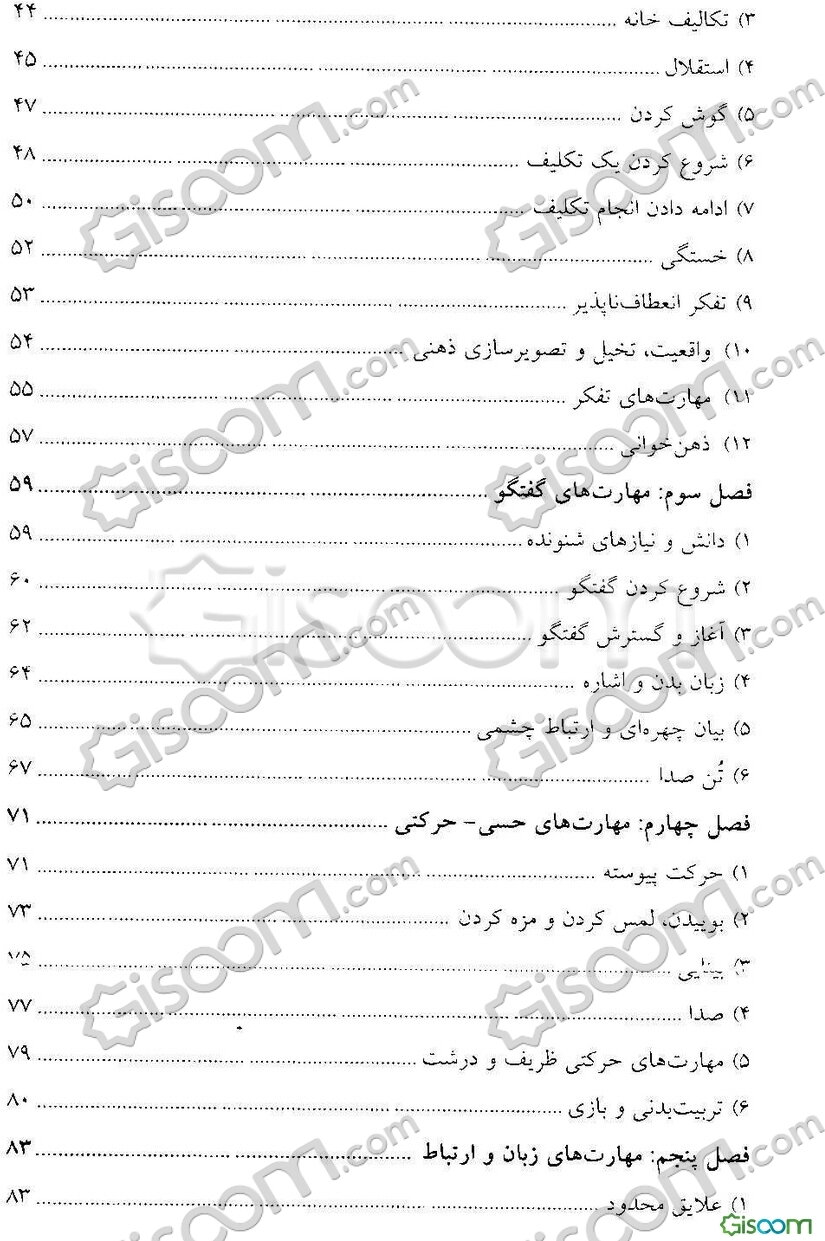 ۳) تکالیف خانه ........ ۴۴
۴) استقلال ........ ۴۵
۵) گوش کردن ........ ۴۷
۶) شروع کردن یک تکلیف ........ ۴۸
۷) ادامه دادن انجام تکلیف ........ ۵۰
۸) خستگی ........ ۵۲
۹) تفکر انعطاف‌ناپذیر ........ ۵۳
۱۰) واقعیت، تخیل و تصویرسازی ذهنی ........ ۵۴
۱۱) مهارت‌های تفکر ........ ۵۵
۱۲) ذهن‌خوانی ........ ۵۷
فصل سوم: مهارت‌های گفتگو ........ ۵۹
۱) دانش و نیازهای شنونده ........ ۵۹
۲) شروع کردن گفتگو ........ ۶۰
۳) آغاز و گسترش گفتگو ........ ۶۲
۴) زبان بدن و اشاره ........ ۶۴
۵) بیان چهره‌ای و ارتباط چشمی ........ ۶۵
۶) تُن صدا ........ ۶۷
فصل چهارم: مهارت‌های حسی- حرکتی ........ ۷۱
۱) حرکت پیوسته ........ ۷۱
۲) بوییدن، لمس کردن و مزه کردن ........ ۷۳
۳) بینایی ........ ۷۵
۴) صدا ........ ۷۷
۵) مهارت‌های حرکتی ظریف و درشت ........ ۷۹
۶) تربیت‌بدنی و بازی ........ ۸۰
فصل پنجم: مهارت‌های زبان و ارتباط ........ ۸۳
۱) علایق محدود ........ ۸۳
Gisoom.com
Gisoom